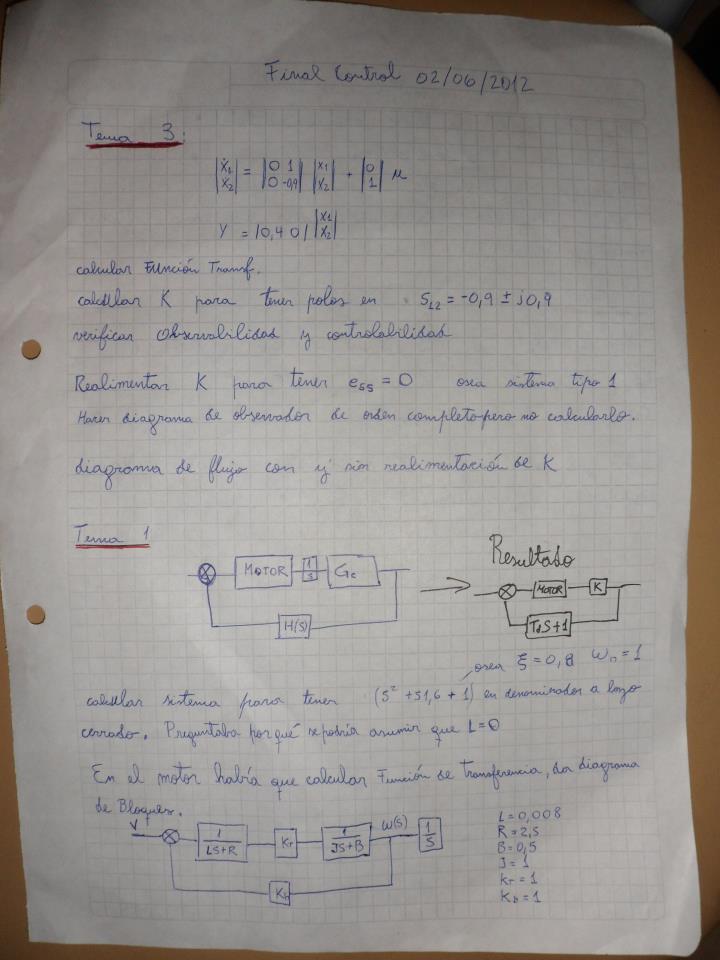 Final Control 02/06/2012
Tema 3:
|ẋ1 ẋ2| = |0 1 0 -0,9| |x1 x2| + |0 1| μ
Y = |0,4 0| |x1 x2|
calcular Función Transf.
calcular K para tener polos en S12 = -0,9 ± j0,9
verificar Observabilidad y controlabilidad
Realimentar K para tener ess = 0 osea sistema tipo 1
Hacer diagrama de observador de orden completo pero no calcularlo.
diagrama de flujo con y sin realimentación de K
Tema 1
MOTOR 1/s Gc
H(S)
Resultado
MOTOR K
TdS+1
osea ξ=0,8 Wn=1
calcular sistema para tener (S² + S1,6 + 1) en denominador a lazo
cerrado. Preguntaba por qué se podría asumir que L=0
En el motor había que calcular Función de Transferencia, dar diagrama
de Bloques.
V 1/LS+R KT 1/JS+B W(S) 1/S
Kb
L=0,008
R=2,5
B=0,5
J=1
kT=1
Kb=1